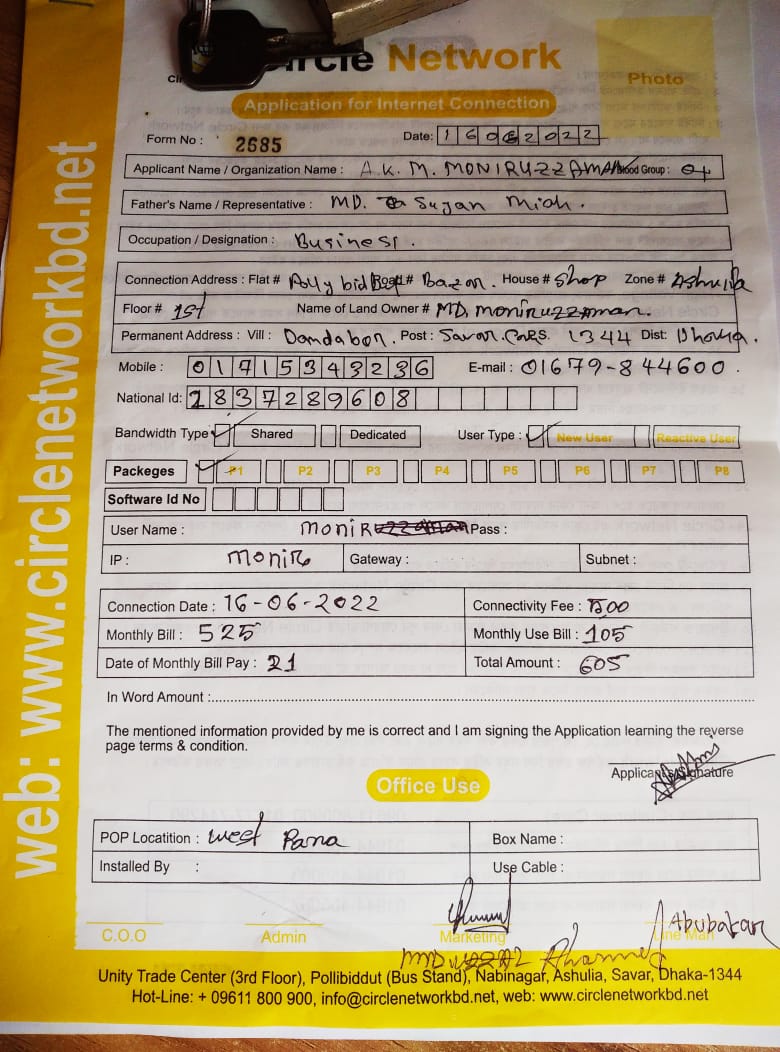 Circle Network
Photo
Application for Internet Connection
Form No : 2685
Date: 16062022
Applicant Name / Organization Name : A.K.M. MONIRUZZAMAN Blood Group: O+
Father's Name / Representative : MD. Sujan Miah.
Occupation / Designation : Business.
Connection Address : Flat # Polly bid Bazar. House # Shop Zone # Ashulia
Floor # 1st Name of Land Owner # MD. Moniruzzaman.
Permanent Address : Vill : Dandabon. Post : Savar. 1344 Dist: Dhaka.
Mobile : 01715343236 E-mail : 01679-844600.
National Id: 1837289608
Bandwidth Type Shared Dedicated User Type : New User Reactive User
Packeges P1 P2 P3 P4 P5 P6 P7 P8
Software Id No
User Name : MONIR Pass :
IP : MONIR Gateway : Subnet :
Connection Date : 16-06-2022 Connectivity Fee : 500
Monthly Bill : 525 Monthly Use Bill : 105
Date of Monthly Bill Pay : 21 Total Amount : 605
In Word Amount :
The mentioned information provided by me is correct and I am signing the Application learning the reverse
page terms & condition.
Applicant's Signature
Office Use
POP Locatition : West Para Box Name :
Installed By : Use Cable :
Abubakar
C.O.O Admin Marketing Line Man
Unity Trade Center (3rd Floor), Pollibiddut (Bus Stand), Nabinagar, Ashulia, Savar, Dhaka-1344
Hot-Line: + 09611 800 900, info@circlenetworkbd.net, web: www.circlenetworkbd.net
web: www.circlenetworkbd.net